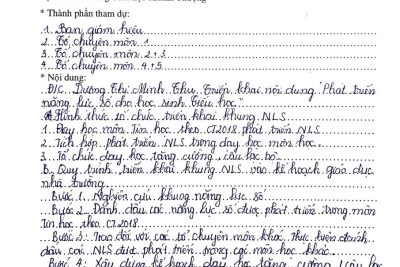 * Thành phần tham dự:
1. Ban giám hiệu
2. Tổ chuyên môn 1
3. Tổ chuyên môn 2+3
4. Tổ chuyên môn 4+5
* Nội dung:
Đ/C Dương Thị Minh Thu Triển khai nội dung "Phát triển
năng lực số cho học sinh Tiểu học"
A. Hình thức tổ chức triển khai khung NLS
1. Dạy học môn Tin học theo CT2018 phát triển NLS
2. Tích hợp phát triển NLS trong dạy học môn học
3. Tổ chức dạy học tăng cường, câu lạc bộ
B. Quy trình triển khai khung NLS vào kế hoạch giáo dục
nhà trường
Bước 1. Nghiên cứu khung năng lực số.
Bước 2. Đánh dấu các năng lực số được phát triển trong môn
Tin học theo CT 2018.
Bước 3: Trao đổi với các tổ chuyên môn khác. Thực hiện đánh
dấu các NLS được phát triển trong các môn học khác.
Bước 4: Xây dựng kế hoạch dạy học tăng cường, câu lạc